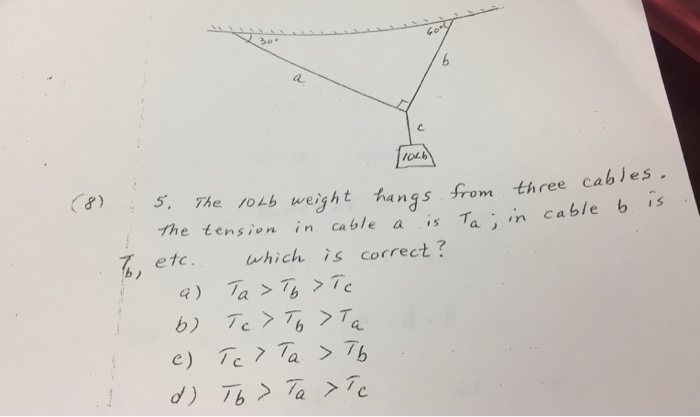 30°
60°
a
b
c
10Lb
(8) 5. The 10Lb weight hangs from three cables.
The tension in cable a is Ta; in cable b is
Tb, etc. Which is correct?
a) Ta > Tb > Tc
b) Tc > Tb > Ta
c) Tc > Ta > Tb
d) Tb > Ta > Tc